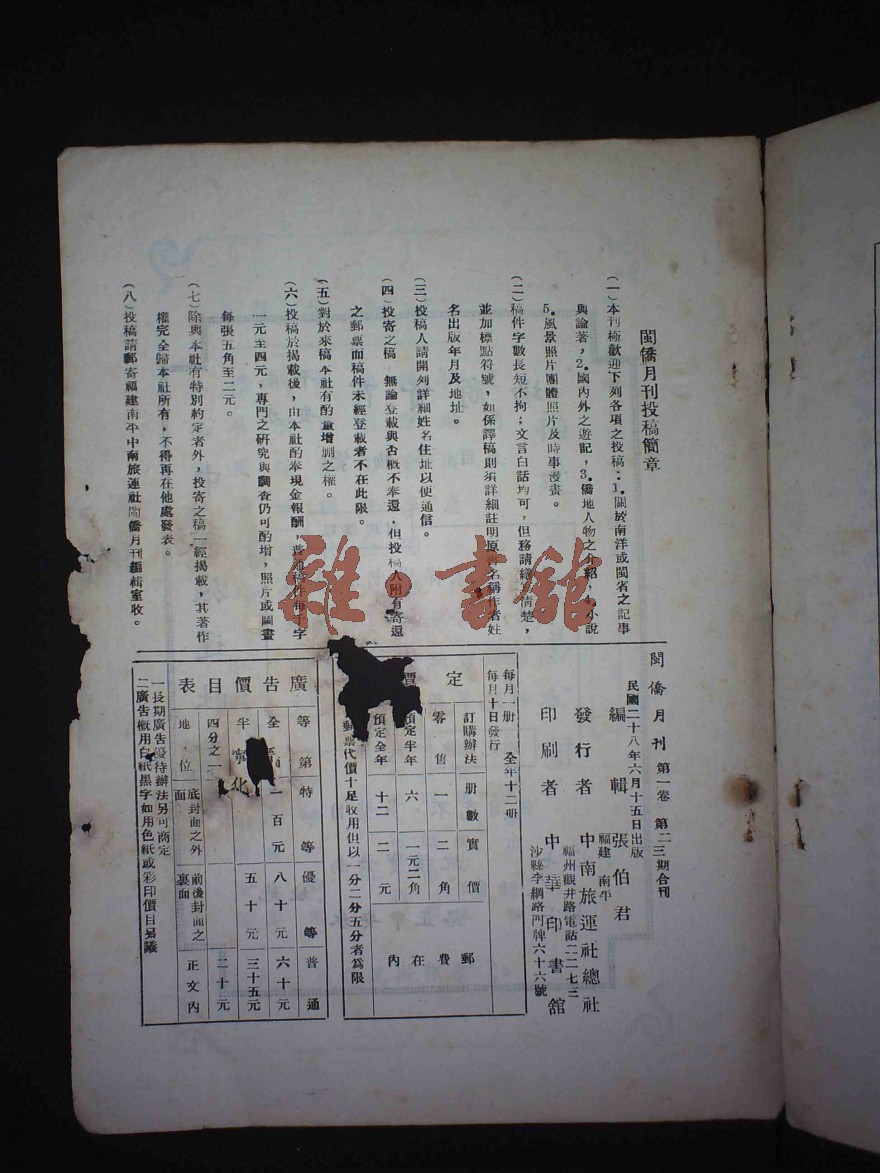 閩僑月刊投稿簡章
(一)本刊極歡迎下列各項之投稿:1.關於南洋或閩省之記事
與論著,2.國內外之遊記,3.僑地人物之介紹,4.小說
5.風景照片團體照片及時事漫畫。
(二)稿件字數長短不拘;文言白話均可,但務請繕清楚,
並加標點符號,如係譯稿則須詳細註明原書名稱作者姓
名出版年月及地址。
(三)投稿人請開列詳細姓名住址以便通信。
(四)投寄之稿 無論登載與否概不奉還,但投稿人附有寄還
之郵票而稿件未經登載者不在此限。
(五)對於來稿本社有酌量增刪之權。
(六)投稿於揭載後,由本社酌奉現金報酬,普通稿件每千字
一元至四元,專門之研究與調查仍可酌增,照片或圖畫
每張五角至二元。
(七)除與本社有特別約定者外,投寄之稿一經揭載,其著作
權完全歸本社所有,不得再在他處發表。
(八)投稿請郵寄福建南平中南旅運社閩僑月刊編輯室收。
閩僑月刊 第一卷 第二三期合刊
民國二十八年六月十五日出版
編輯 張伯君
福建 南平
發行者 中南旅運社總社
福州觀井路電話二二七三
印刷者 中華印書館
沙縣李綱路門牌六十六號
每月一册 全年十二册
每月十日發行
定價
訂購辦法 册數 實價 郵費
零售 一 二角 在
預定半年 六 一元二角 內
預定全年 十二 二元
郵票代價十足收用但以一分二分五分者爲限
廣告價目表
等第 特等 優等 普通
全 一百元 八十元 六十元
半 五十元 三十五元
四分之一 二十元
地位 底封面之外面 前後封面之裏面 正文內
一長期廣告優待辦法另可商定
二廣告概用白紙黑字如用色紙或彩印價目另議
雜·書館